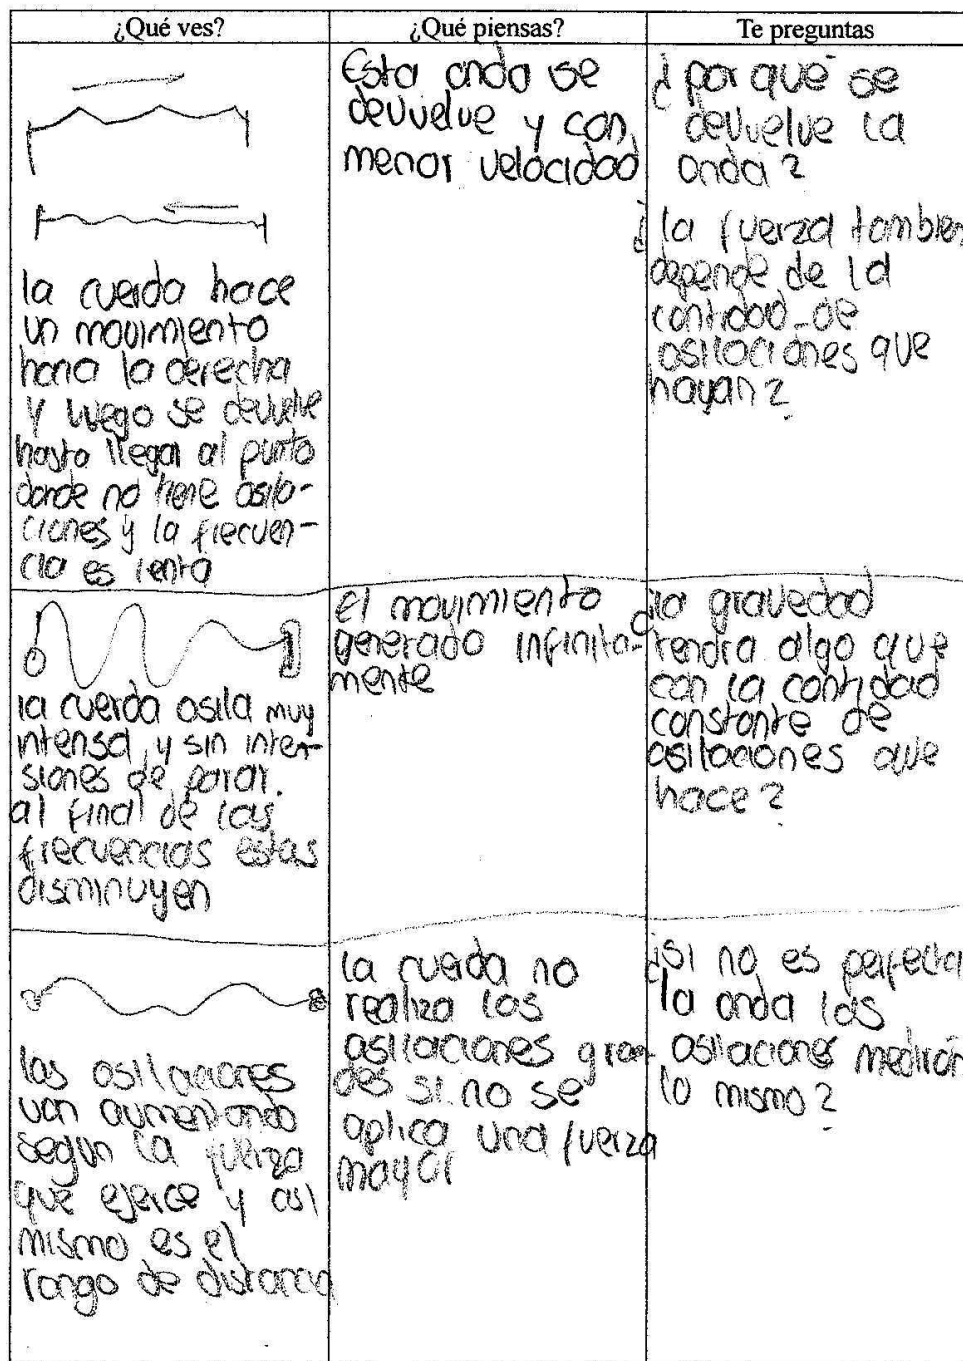 ¿Qué ves?
¿Qué piensas?
Te preguntas
la cuerda hace
un movimiento
hacia la derecha
y luego se devuelve
hasta llegar al punto
donde no tiene osila-
ciones y la frecuen-
cia es lenta
Esta onda se
devuelve y con
menor velocidad
¿por qué se
devuelve la
onda?
¿la fuerza tambien
depende de la
cantidad de
osilaciones que
hayan?
la cuerda osila muy
intensa, y sin inten-
siones de parar.
al final de las
frecuencias estas
disminuyen
el movimiento
generado infinita-
mente
¿la gravedad
tendra algo que
con la cantidad
constante de
osilaciones que
hace?
las osilaciones
van aumentando
segun la fuerza
que ejerce y asi
mismo es el
rango de distancia
la cuerda no
realiza las
osilaciones gran-
des si no se
aplica una fuerza
mayor
¿si no es perfecta
la onda las
osilaciones medirán
lo mismo?